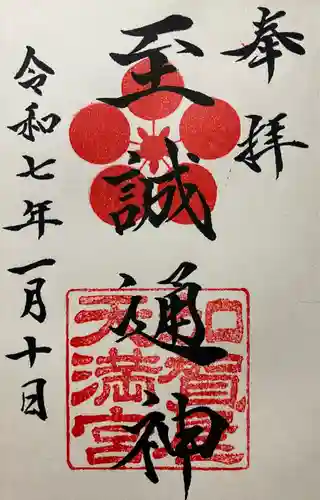 奉拝
至誠通神
加賀
天満宮
令和七年一月十日